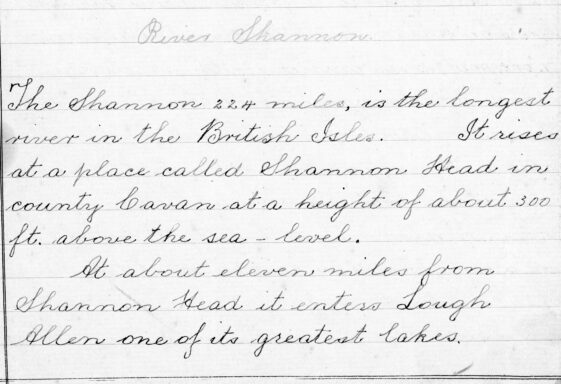 River Shannon
The Shannon 224 miles, is the longest
river in the British Isles. It rises
at a place called Shannon Head in
county Cavan at a height of about 300
ft. above the sea - level.
At about eleven miles from
Shannon Head it enters Lough
Allen one of its greatest lakes.